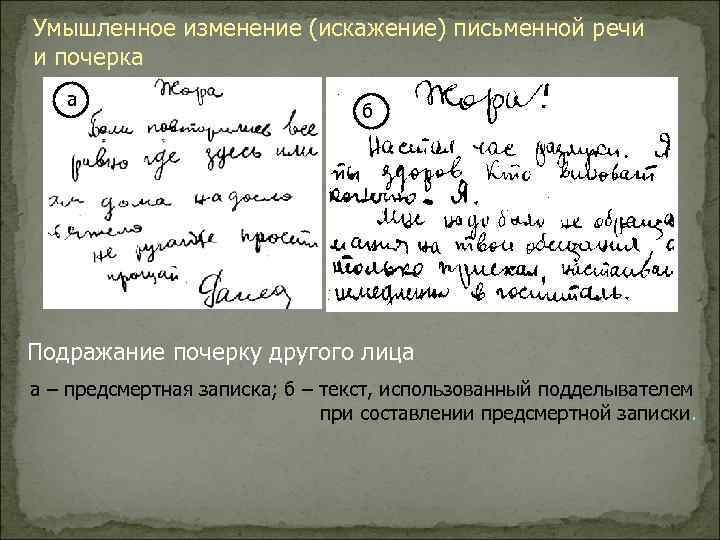 Умышленное изменение (искажение) письменной речи
и почерка
а
Жора
Боли повторились все
равно где здесь или
дома надоело
тяжело
не ругайте прости
прощай
б
Жора!
Настал час разлуки. Я
ты здоров Кто виноват
конечно - Я.
Мне надо было не обраща
мания на твои обещания, а
только приехал, настаивал
немедленно в госпиталь.
Подражание почерку другого лица
а – предсмертная записка; б – текст, использованный подделывателем
при составлении предсмертной записки.